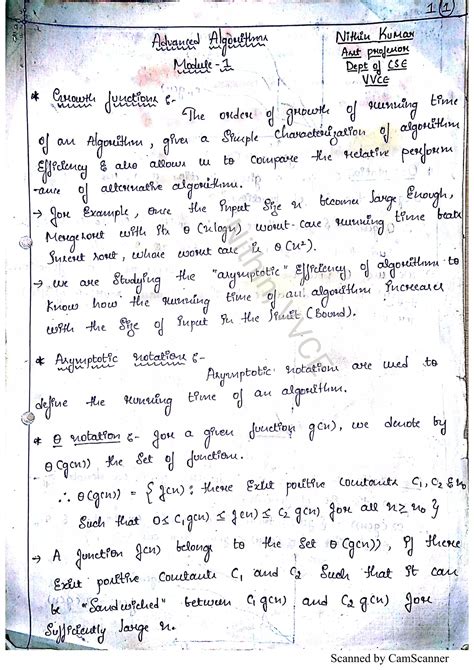 1 (1)
Advanced Algorithms
Nithin Kumar
Asst professor
Module - 1
Dept of CSE
VVCE
* Growth functions :-
The order of growth of running time
of an Algorithm, gives a Simple characterization of algorithm
Efficiency & also allows us to compare the relative perform
-ance of alternative algorithm.
→ For Example, once the input size n become large Enough,
Mergesort with its θ(nlogn) worst-case running time beats
Insert sort, whose worst case is θ(n²).
→ we are Studying the "asymptotic" Efficiency of algorithms to
Know how the running time of an algorithm increases
with the Size of input in the limit (Bound).
* Asymptotic notations :-
Asymptotic notations are used to
define the running time of an algorithm.
* θ notation :- For a given function g(n), we denote by
θ(g(n)) the Set of function.
∴ θ(g(n)) = { f(n) : there Exist positive constants C₁, C₂ & n₀
Such that 0 ≤ C₁g(n) ≤ f(n) ≤ C₂ g(n) for all n ≥ n₀ }
→ A function f(n) belongs to the Set θ(g(n)), If there
Exist positive Constants C₁ and C₂ Such that It can
be "Sandwiched" between C₁g(n) and C₂ g(n) for
Sufficiently large n.
Nithin VVCE
Scanned by CamScanner